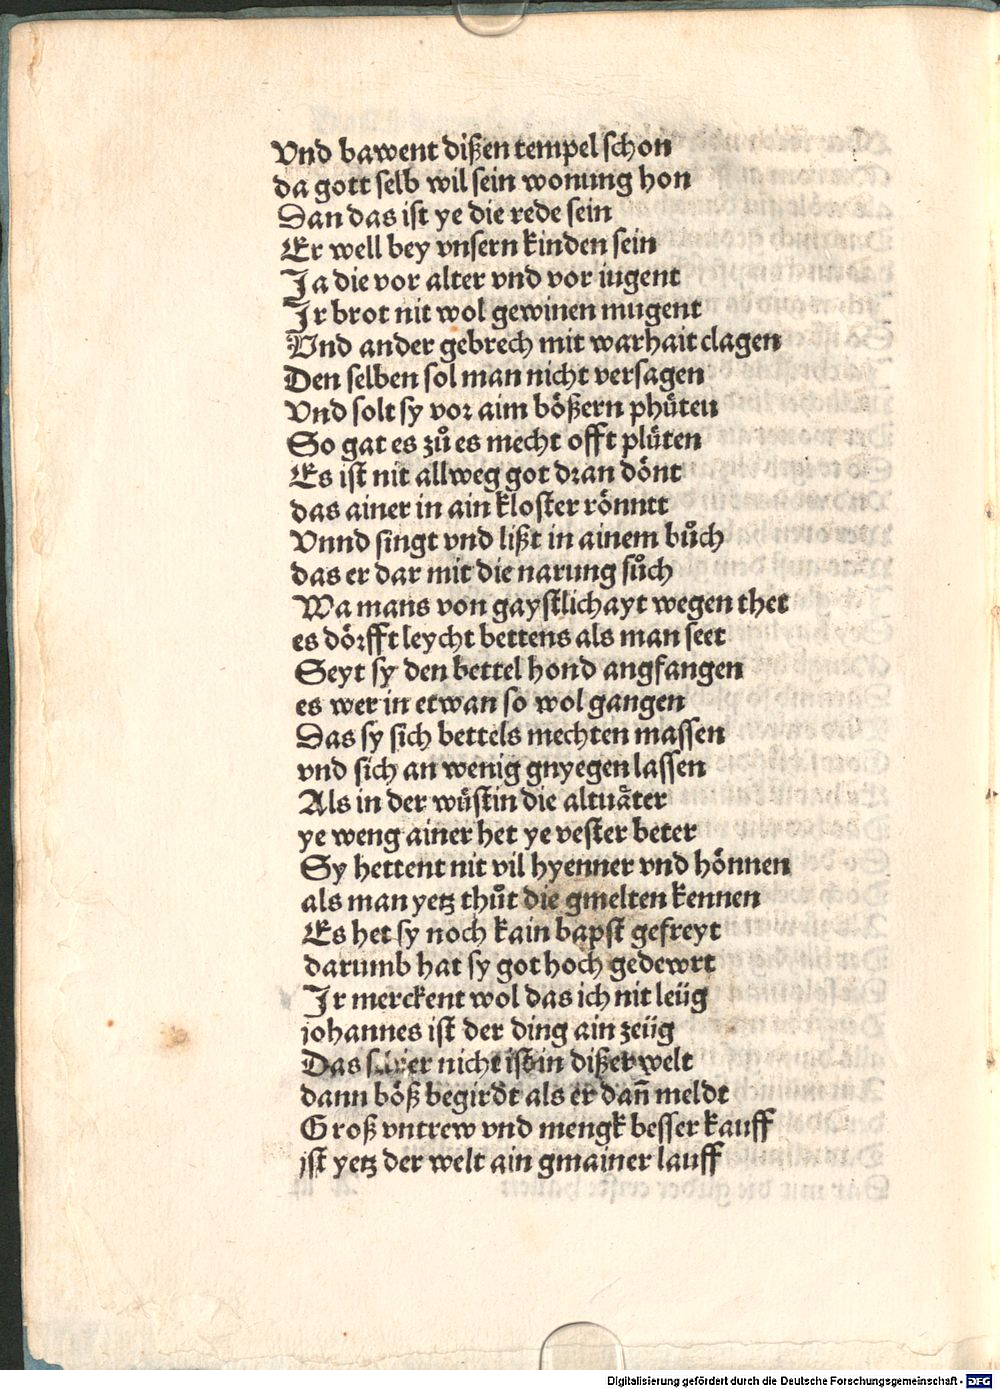 Vnd bawent dißen tempel schon
da gott selb wil sein wonung hon
Dan das ist ye die rede sein
Er well bey vnsern kinden sein
Ja die vor alter vnd vor iugent
Jr brot nit wol gewinen mugent
Vnd ander gebrech mit warhait clagen
Den selben sol man nicht versagen
Vnd solt sy vor aim bößern phuͤten
So gat es zů es mecht offt pluͤten
Es ist nit allweg got dran doͤnt
das ainer in ain kloster roͤnntt
Vnnd singt vnd lißt in ainem bůch
das er dar mit die narung sůch
Wa mans von gaystlichayt wegen thet
es doͤrfft leycht bettens als man seet
Seyt sy den bettel hond angfangen
es wer in etwan so wol gangen
Das sy sich bettels mechten massen
vnd sich an wenig gnyegen lassen
Als in der wuͤstin die altuaͤter
ye weng ainer het ye vester beter
Sy hettent nit vil hyenner vnd hoͤnnen
als man yetz thůt die gmelten kennen
Es het sy noch kain bapst gefreyt
darumb hat sy got hoch gedewrt
Jr merckent wol das ich nit leüg
johannes ist der ding ain zeüg
Das nicht ist in dißer welt
dann böß begirdt als er dan̄ meldt
Groß vntrew vnd mengk besser kauff
ist yetz der welt ain gmainer lauff
Digitalisierung gefördert durch die Deutsche Forschungsgemeinschaft - DFG